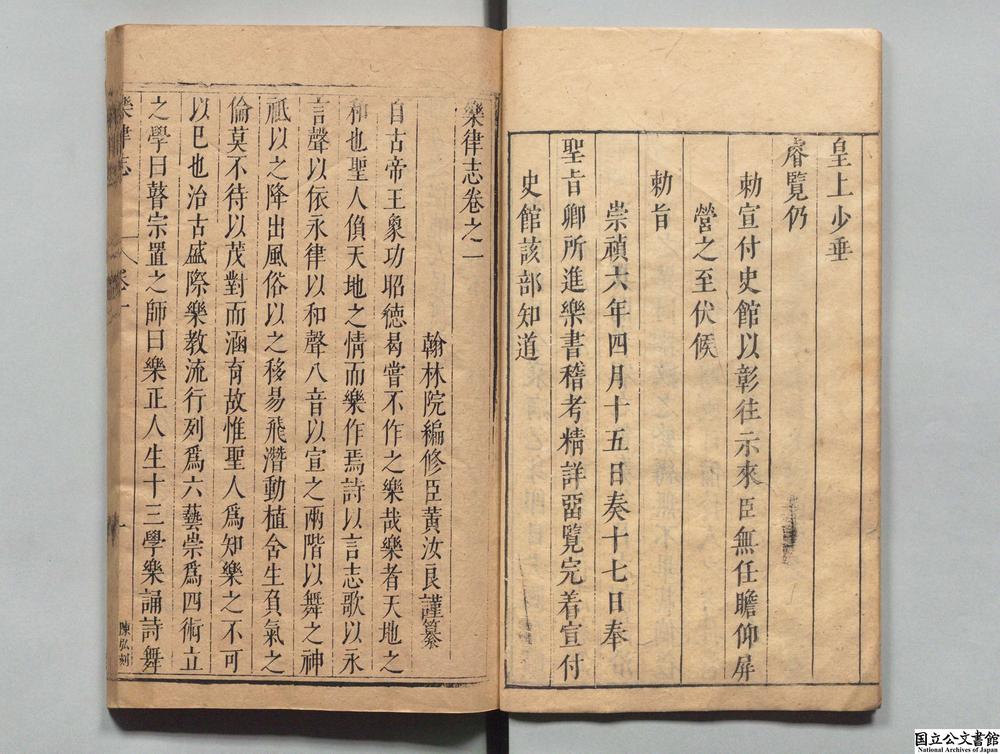 皇上少垂
睿覽仍
勅宣付史館以彰往示來臣無任瞻仰屏
營之至伏候
勅旨
崇禎六年四月十五日奏十七日奉
聖旨卿所進樂書稽考精詳畱覽完着宣付
史館該部知道
樂律志卷之一
翰林院編修臣黃汝良謹纂
自古帝王象功昭德曷嘗不作之樂哉樂者天地之
和也聖人僨天地之情而樂作焉詩以言志歌以永
言聲以依永律以和聲八音以宣之兩階以舞之神
祇以之降出風俗以之移易飛潛動植含生負氣之
倫莫不待以茂對而涵育故惟聖人爲知樂之不可
以已也治古盛際樂教流行列爲六藝崇爲四術立
之學曰瞽宗置之師曰樂正人生十三學樂誦詩舞
樂律志
卷一
一
陳弘刻
国立公文書館
National Archives of Japan